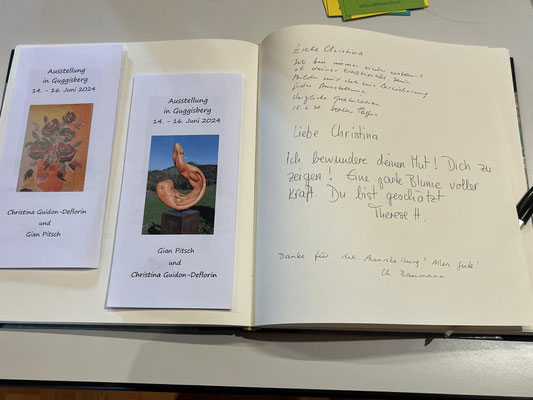 Ausstellung
in Guggisberg
14. - 16. Juni 2024
Christina Guidon-Deflorin
und
Gian Pitsch
Ausstellung
in Guggisberg
14. - 16. Juni 2024
Gian Pitsch
und
Christina Guidon-Deflorin
Liebe Christina
Ich bin immer wieder
ob deiner Kreativität. Deine
Bilder sind eine Bereicherung
jeder Ausstellung
Herzliche Gratulation
Liebe Christina
Ich bewundere deinen Mut! Dich zu
zeigen! Eine zarte Blume voller
Kraft. Du bist geschätzt
Therese H.
Danke für die Ausstellung! Alles Gute!
Ch. Baumann